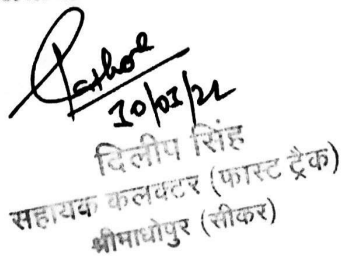 Rathore
10/01/22
दिलीप सिंह
सहायक कलक्टर (फास्ट ट्रैक)
श्रीमाधोपुर (सीकर)